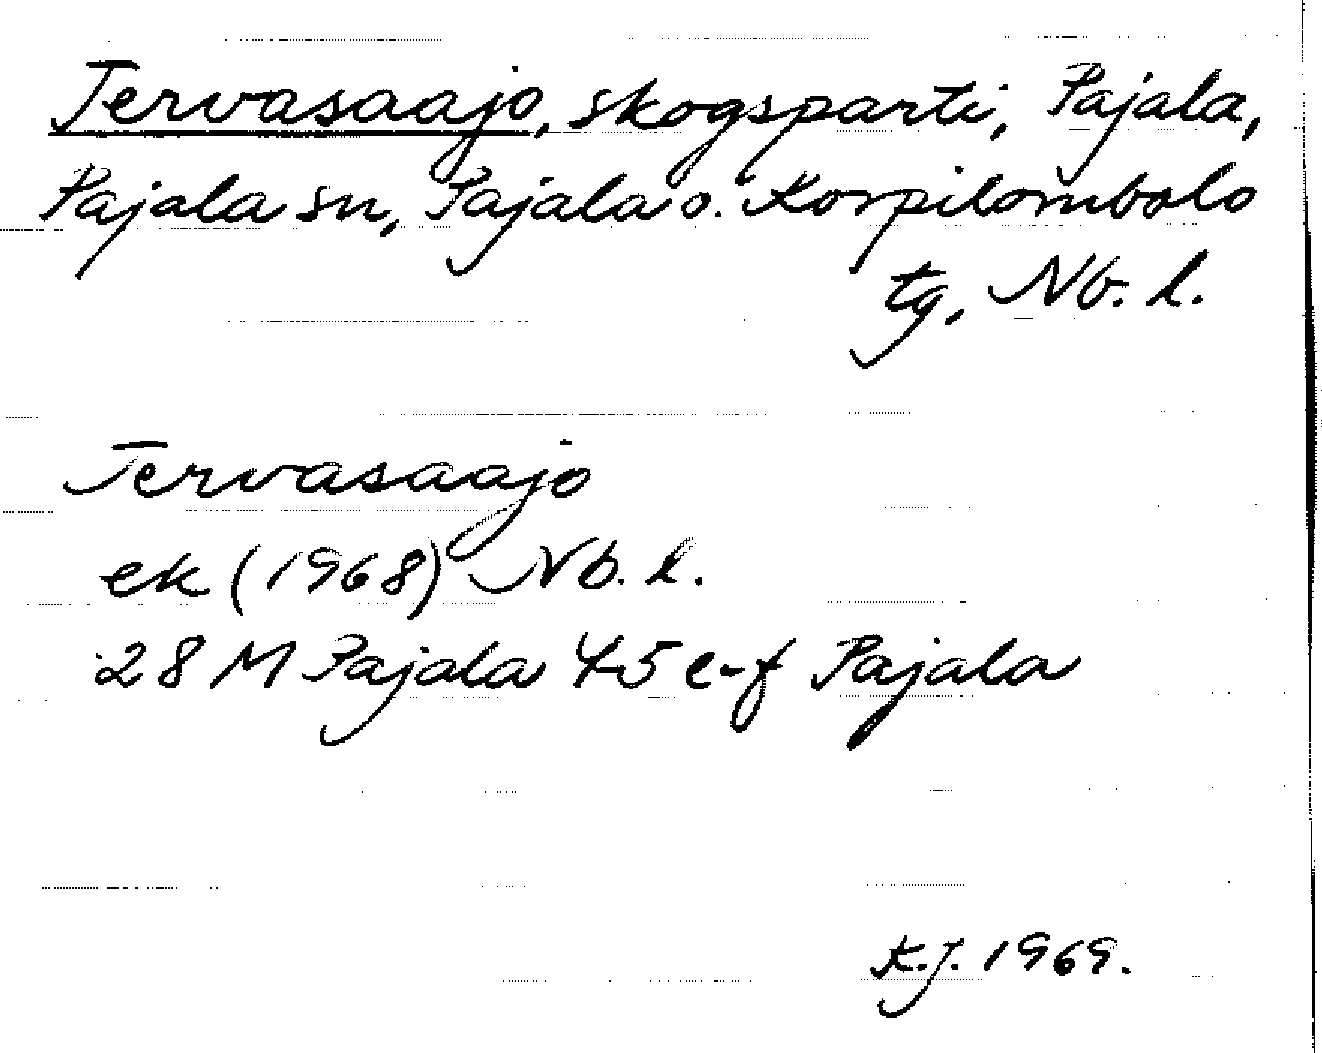 Tervasaajo, skogsparti, Pajala,
Pajala sn, Pajala o. Korpilombolo
tg, Nb. l.
Tervasaajo
ek (1968) Nb. l.
28 M Pajala 45 e-f Pajala
K.J. 1969.